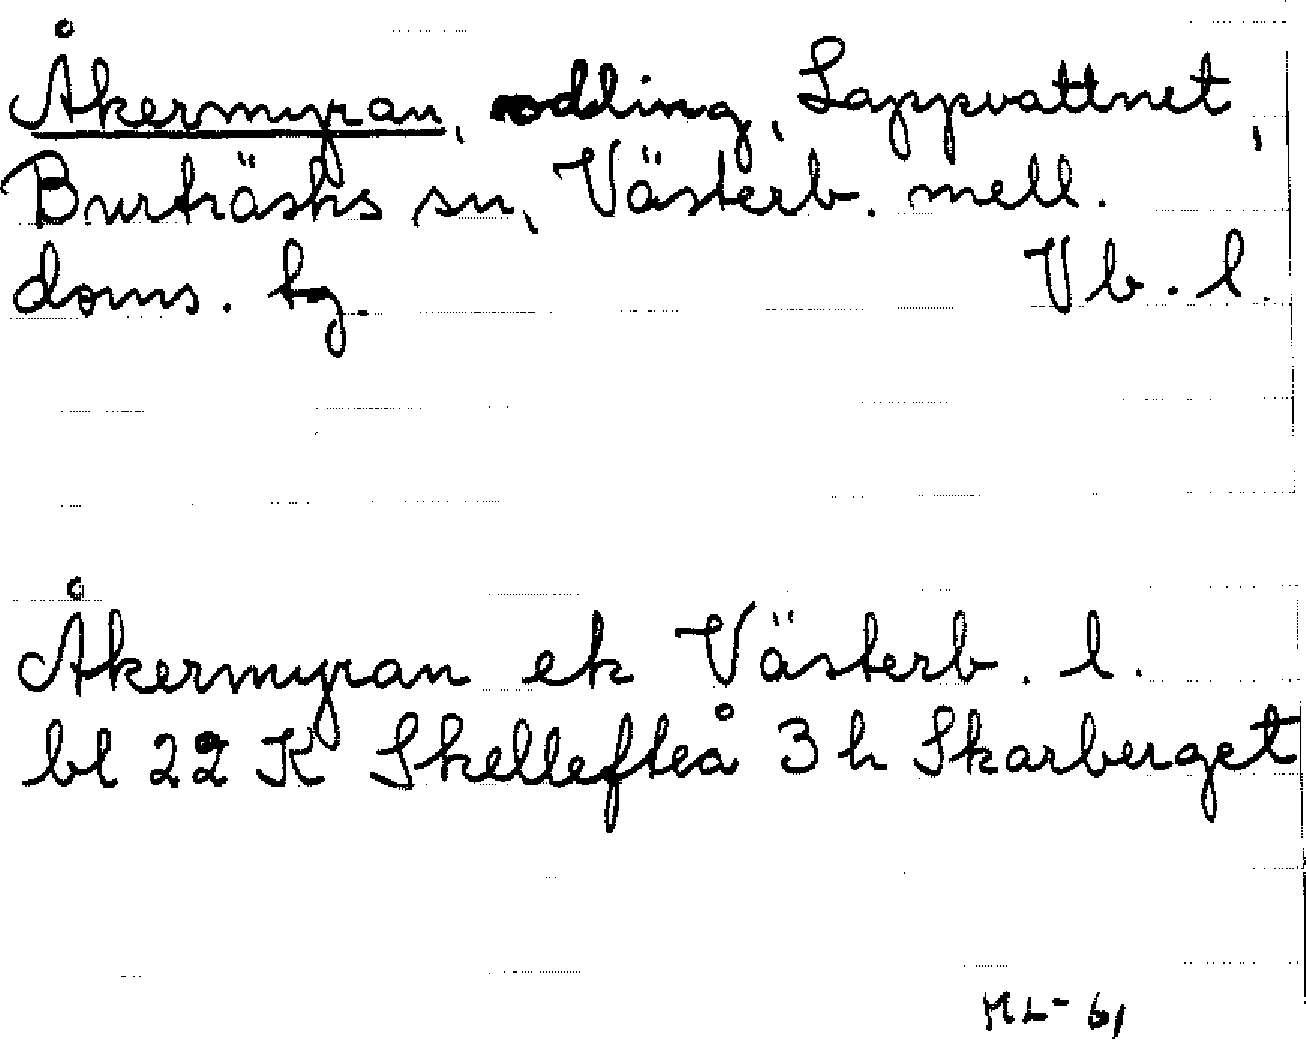 Åkermyran, odling, Lappvattnet,
Burträsks sn, Västerb. mell.
doms. tg. Vb. l.
Åkermyran ek Västerb. l.
bl 22 K Skellefteå 3 h Skarberget
ML- 61